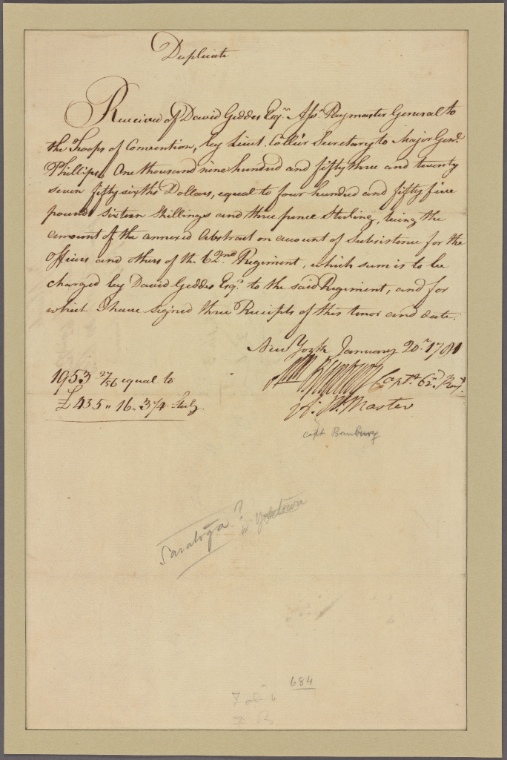 Duplicate
Received of David Geddes Esqr. Asst. Paymaster General to
the Troops of Convention, by Lieut. Collier Secretary to Major Genl.
Phillips One thousand nine hundred and fifty three and twenty
seven fifty sixths Dollars, equal to four hundred and fifty five
pounds Sixteen Shillings and three pence Sterling, being the
amount of the annexed Abstract on account of Subsistence for the
Officers and others of the 62nd Regiment, which sum is to be
charged by David Geddes Esqr. to the said Regiment, and for
which I have signed three Receipts of this tenor and date.
New York January 20th 1781
1953 27/56 equal to
Capt. 62d. Regt
£ 455 " 16. 3 1/4 Sterlg
Master
capt Banbury
Saratoga?
684